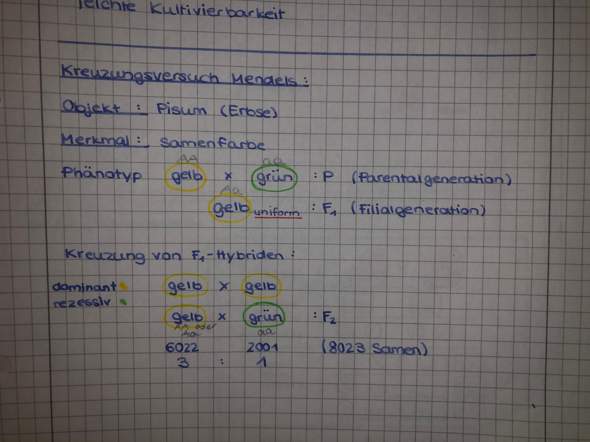 leichte Kultivierbarkeit
Kreuzungsversuch Mendels:
Objekt: Pisum (Erbse)
Merkmal: Samenfarbe
AA aa
Phänotyp gelb x grün : P (Parentalgeneration)
Aa
gelb uniform : F₁ (Filialgeneration)
Kreuzung von F₁-Hybriden:
dominant gelb x gelb
rezessiv
gelb x grün : F₂
AA oder aa
Aa
6022 2001 (8023 Samen)
3 : 1